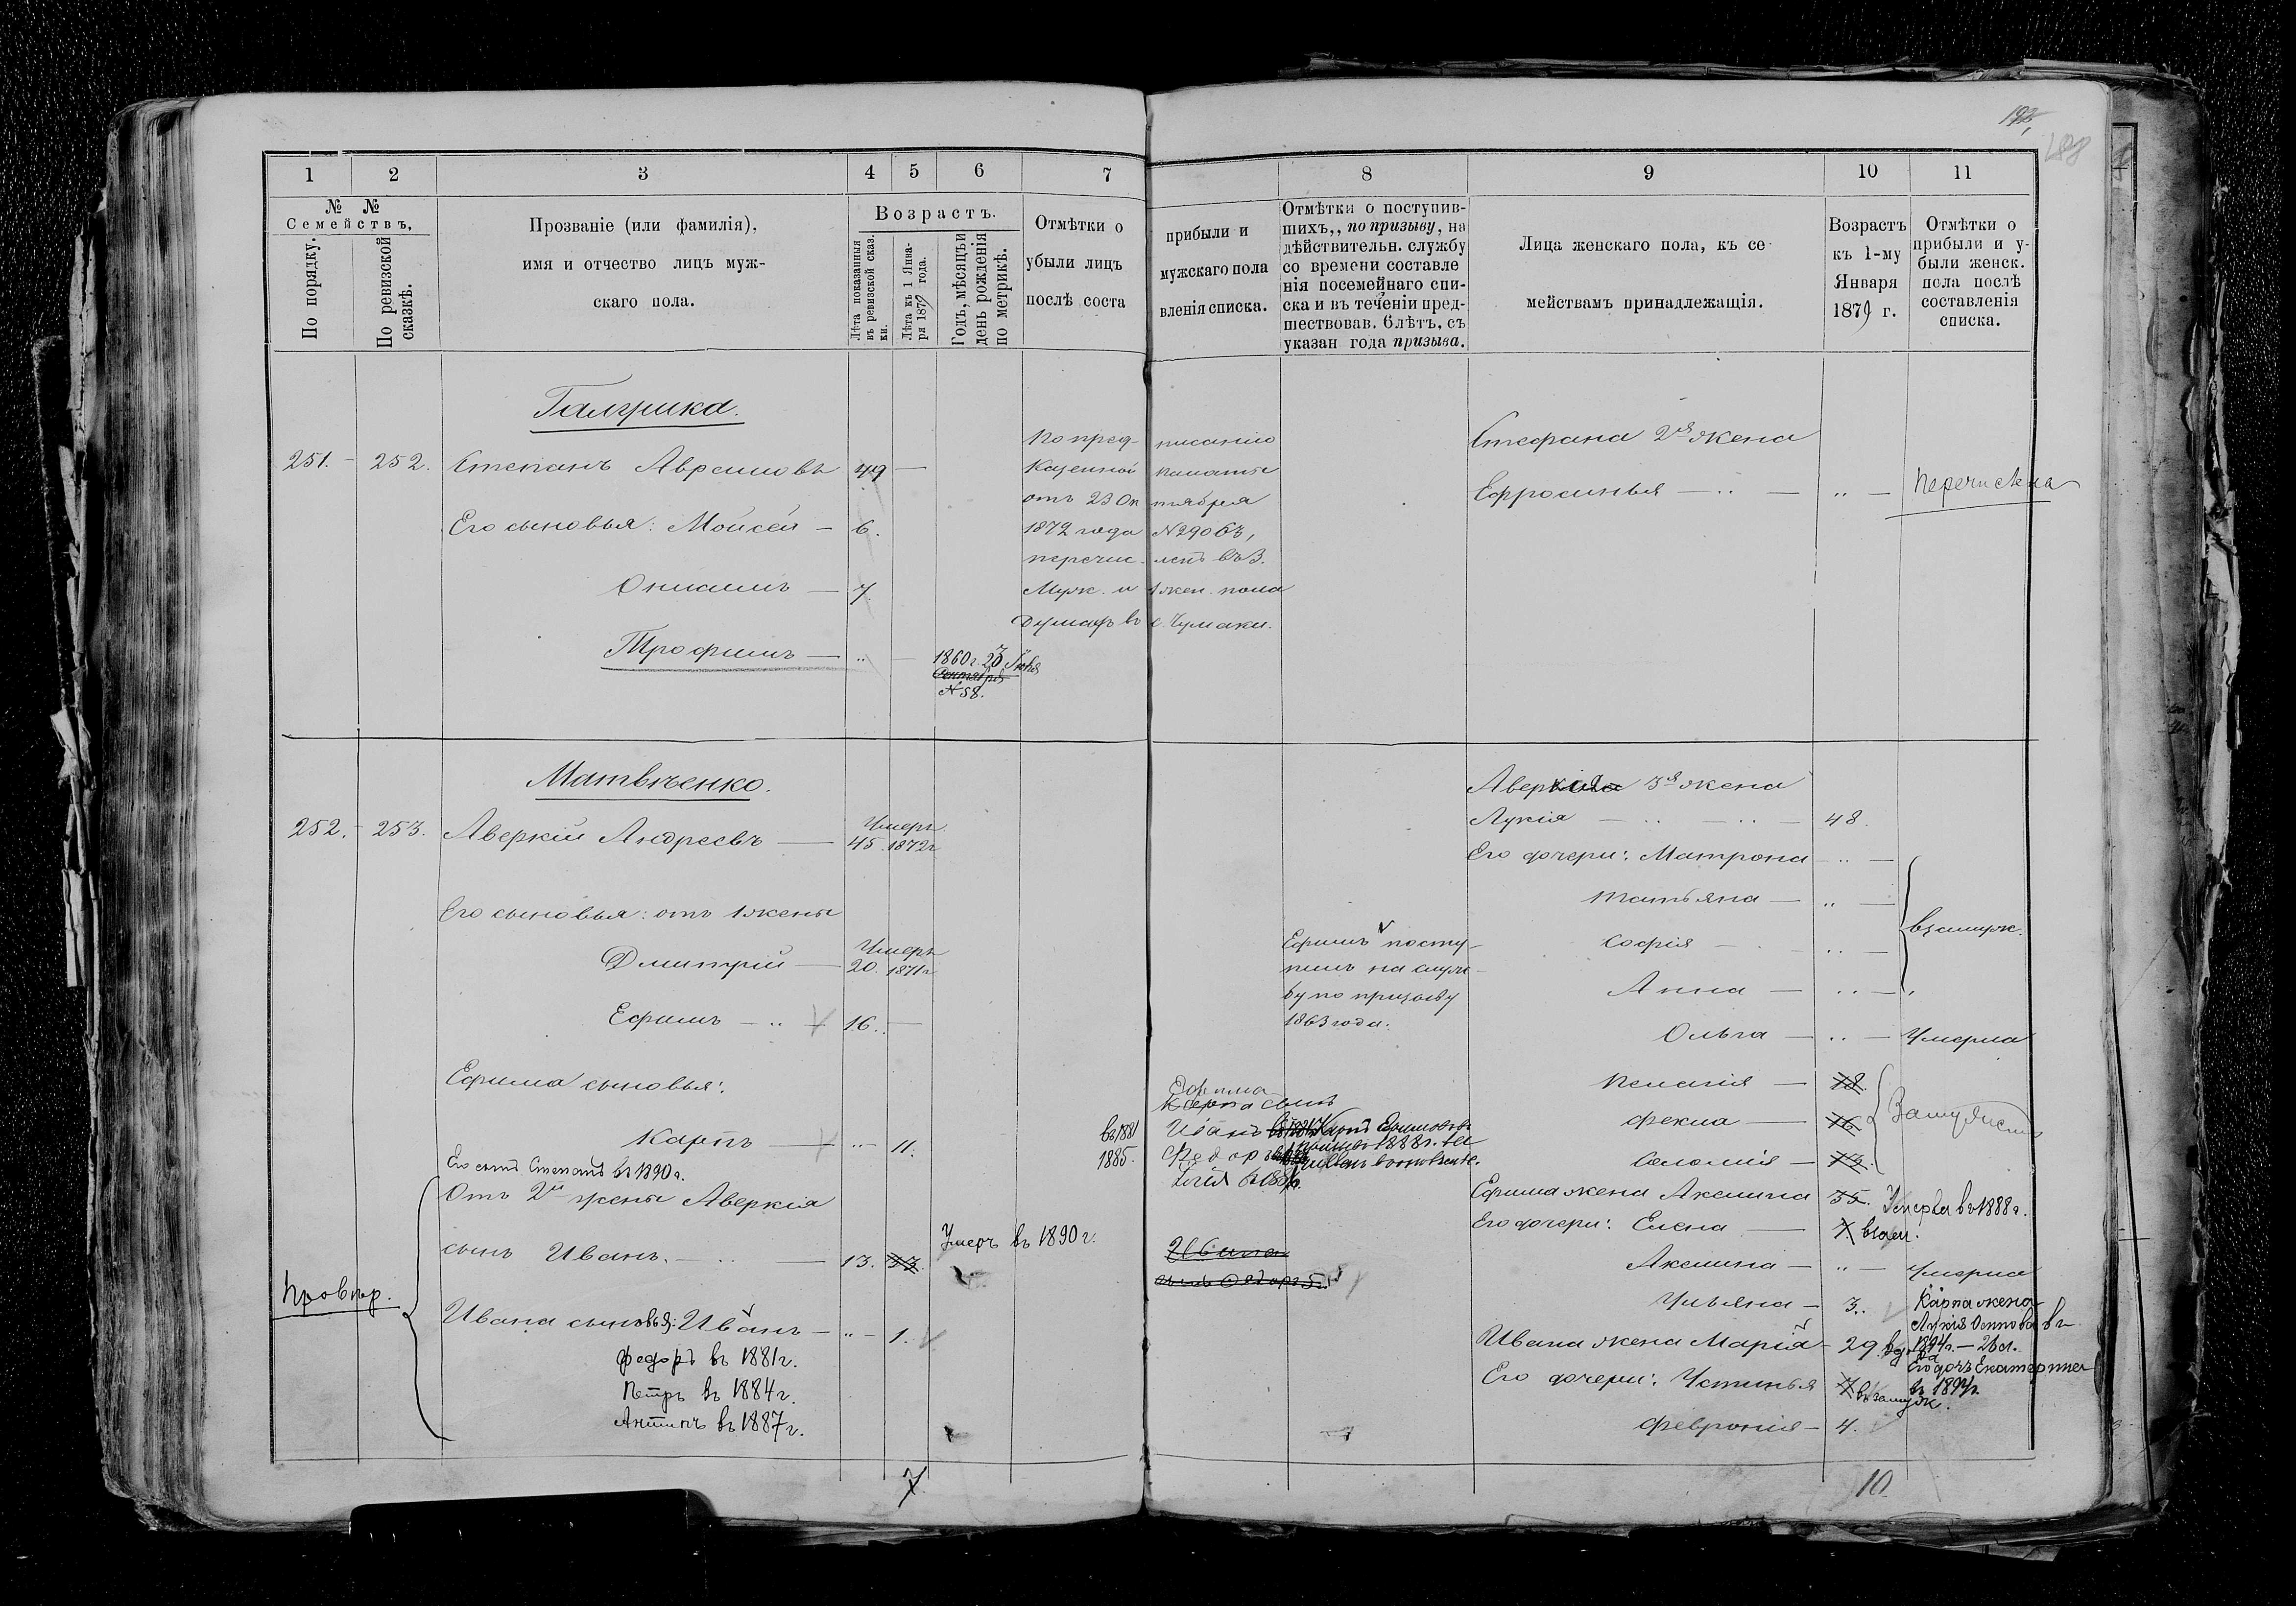 188
1 2 3 4 5 6 7 8 9 10 11
№ № Семействъ.
По порядку.
По ревизской сказкѣ.
Прозваніе (или фамилія),
имя и отчество лицъ муж-
скаго пола.
Возрастъ.
Лѣта показанныя въ ревизской сказ. ки.
Лѣта къ 1 Янва- ря 1879 года.
Годъ, мѣсяцъ и день рожденія по метрикѣ.
Отмѣтки о прибыли и
убыли лицъ мужскаго пола
послѣ соста вленія списка.
Отмѣтки о поступив-
шихъ,, по призыву, на
дѣйствительн. службу
со времени составле
нія посемейнаго спи-
ска и въ теченіи пред-
шествовав. 6 лѣтъ, съ
указан года призыва.
Лица женскаго пола, къ се-
мействамъ принадлежащія.
Возрастъ
къ 1-му
Января
1879 г.
Отмѣтки о
прибыли и у-
были женск.
пола послѣ
составленія
списка.
Галушка.
251. 252. Степанъ Аврамовъ 49 —
Его сыновья: Мойсей — 6.
Онисимъ — 7.
Трофимъ — „ —
1860 г. 23 Іюня
Сентября
№ 58.
По пред- писанію
Казенной палаты
отъ 23 Ок тября
1872 года № 2906,
перечис- ленъ въ 3.
Муж. и 1 жен. пола
душах въ с. Чумаки.
Стефана 2я жена
Ефросинья — „ — „ — Перечислена
Матвѣенко.
252. 253. Аверкій Андреевъ — 45. Умеръ 1872 г
Его сыновья: отъ 1 жены
Дмитрій — 20. Умеръ 1871 г
Ефимъ — „ 16. —
Ефима сыновья:
Карпъ — „ — 11.
Его сынъ Степанъ въ 1890 г.
Отъ 2й жены Аверкія
сынъ Иванъ. — „ — 13. 33.
Умеръ въ 1890 г.
Провѣр.
Ивана сыновья: Иванъ — „ — 1.
Федоръ въ 1881 г.
Петръ въ 1884 г.
Антипъ въ 1887 г.
7
въ 1881
1885.
Ефима
Карпа сынъ
Иванъ
Федоръ
Ивана
сынъ Федоръ
Ефимъ посту-
пилъ на служ-
бу по призыву
1863 года.
Аверкія 3я жена
Лукія — „ — „ — 48.
Его дочери: Матрона — „ —
Татьяна — „ —
Софія — „ —
Анна — „ —
взамуж.
Ольга — „ — Умерла
Пелагія — 18.
Фекла — 16.
Соломія — 13.
Замужем
Ефима жена Акилина 35. Умерла въ 1888 г.
Его дочери: Елена — 7
Акилина — „ — Умерла
Ульяна — 3.
Карпа жена
Ивана жена Марія — 29.
Его дочь Екатерина
въ 1894 г.
Его дочери: Устинья 7 въ замуж.
Февронія — 4.
10